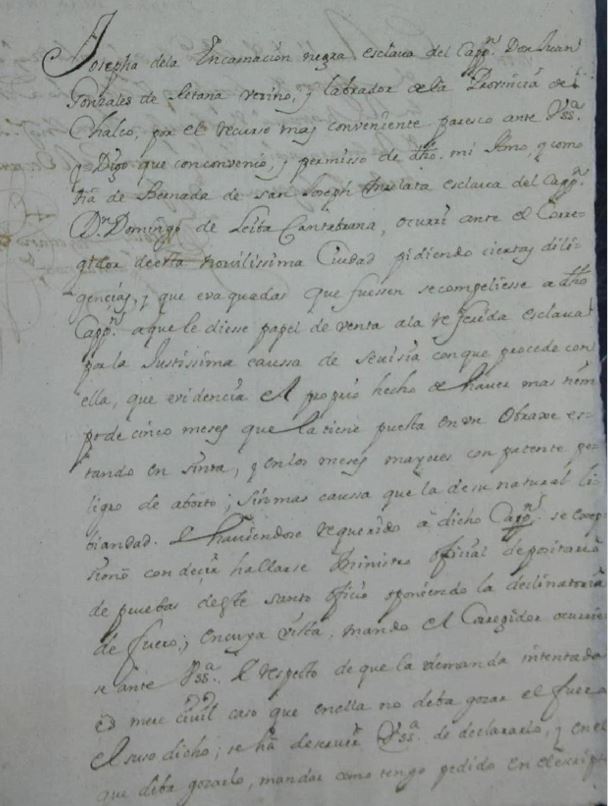 Josepha dela Encarnacion negra esclava del Capp.n Don Juan
Gonzales de Retana vecino, y labrador de la Provincia de
Chalco, por el recurso mas conveniente paresco ante Vss.a
y Digo que con convenio, y permisso de dho. mi Amo, y como
hà de Bernada de San Joseph mulata esclava del Capp.n
D.n Domingo de Leita Cantabrana, ocurri ante el Corre-
gidor de esta novilissima Ciudad pidiendo ciertas dili-
gencias, y que evaquadas que fuessen se compeliesse a dho
Capp.n a que le diese papel de venta ala referida esclava
por la Justissima caussa de Sevisia con que procede con
ella, que evidencia el proprio hecho de haver mas tiem
po de cinco meses que la tiene puesta en vn Obraxe es-
tando en sinta, y en los meses mayores con patente pe-
ligro de aborto; sin mas caussa que la de su natural li-
biandad. E haviendose requerido à dicho Capp.n se excep
sionò con decir hallarse Ministro oficial depositario
de pruebas deste santo oficio oponiendo la declinatoria
de fuero; en cuya vista, mandò el Corregidor ocurrie
se ante Vss.a E respecto de que la demanda intentada
es mere civil caso que en ella no deba gozar el fuero
el suso dicho; se hà de servir Vss.a de declararlo, y en el
que deba gozarlo, mandar como tengo pedido en el escrip